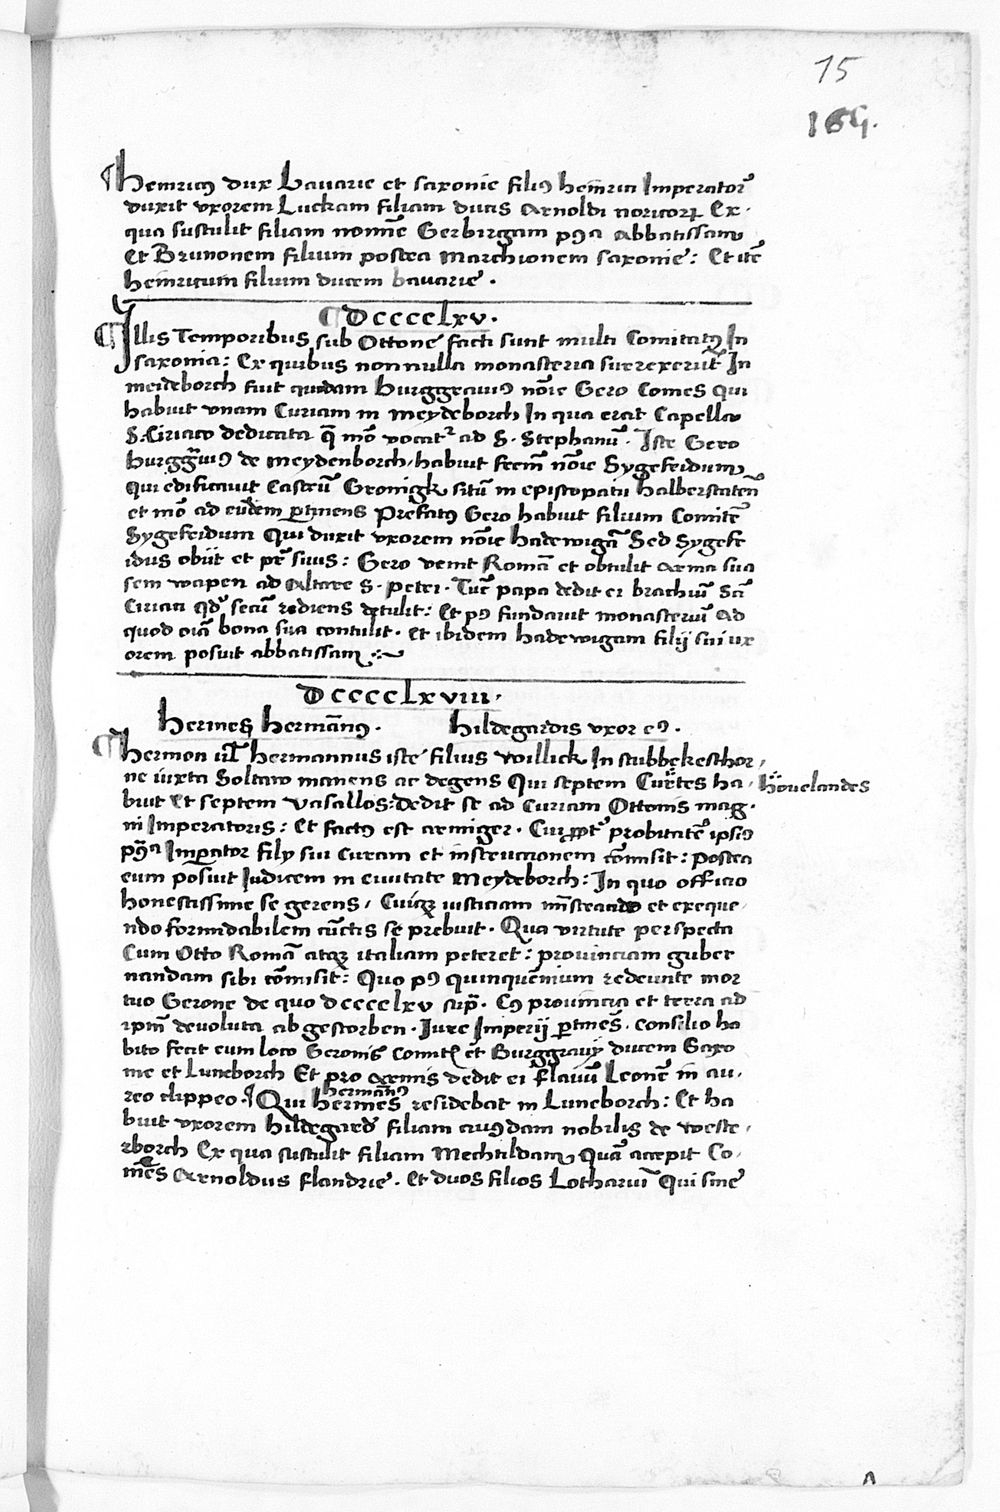 15
169.
¶ Heinricꝰ dux Bauarie et saxonie filiꝰ heinrici Imperatorꝭ
duxit vxorem Luckam filiam ducis Arnoldi noricorꝝ Ex-
qua sustulit filiam nomīe Gerbirgam pꝰa Abbatissam
Et Brunonem filium postea Marchionem saxonie: Et itē
heinricum filium ducem bauarie.
Dcccclxv.
¶ Illis Temporibus sub Ottone facti sunt multi Comitatꝰ In
saxonia: Ex quibus nonnulla monasteria surrexerūt In
meideborch fuit quidam Burggrauiꝰ noīe Gero Comes qui
habuit vnam Curiam in meydeborch In qua erat Capella
S. Ciriaco dedicata q̄ mō vocatᷣ ad S. Stephanū. Iste Gero
burgg̃uiꝰ de meydenborch habuit frēm noīe Sygefridum
qui edificauit Castrū Gronigk sitū in episcopatu halberstateñ
et mō ad eūdem ꝑtinens Prefatꝰ Gero habuit filium Comitē
Sygefridum Qui duxit vxorem noīe hadewigā Sed Sygefr
idus obiit et pr̄ suus: Gero venit Romā et obtulit arma sua
sem wapen ad Altare S. petri. Tūc papa dedit ei brachiū Sc̄i
Ciriaci qd̄ secū rediens detulit: Et pꝰ fundauit monasteriū Ad
quod oīa bona sua contulit. Et ibidem hadewigam filij sui ux
orem posuit abbatissam
Dcccclxviii.
hermeꝭ hermānꝰ. hildegardis vxor eiꝰ.
¶ Hermon ul̄ hermannus iste filius willick In stubbekeschor,
ne iuxta Soltaw manens ac degens Qui septem Cur̄tes ha- Houelandes
buit Et septem vasallos: Dedit se ad Curiam Ottonis mag-
ni Imperatoris: Et factꝰ est armiger. Cui ꝓpt̄ probitatē ipsiꝰ
pꝰa Imꝑator filij sui curam et instructionem cōmisit: postea
eum posuit Iudicem in ciuitate Meydeborch: In quo officio
honestissime se gerens, Cuiqꝫ iusticiam mīstrando et exeque-
ndo formidabilem cūctis se prebuit. Qua virtute perspecta
Cum Otto Romā atqꝫ italiam peteret: prouinciam guber
nandam sibi cōmisit: Quo pꝰ quinquēnium redeunte mor
tuo Gerone de quo dcccclxv sup̄. Cꝰ prouincia et terra ad
ipm̄ deuoluta ab gestorben. Iure Imperij ꝑtineñs. Consilio ha
bito fecit eum loco Geronis Comitꝭ et̄ Burggrauij ducem Saxo
nie et Luneborch Et pro armis dedit ei flauū Leonē in au-
reo clippeo. ¶ Qui hermēs hermannꝰ residebat in Luneborch: Et ha
buit vxorem hildegard̄ filiam cuiꝰdam nobilis de weste-
rborch Ex qua sustulit filiam Mechtildam Quā accepit Co-
mēs Arnoldus flandrie. Et duos filios Lothariū Qui sine